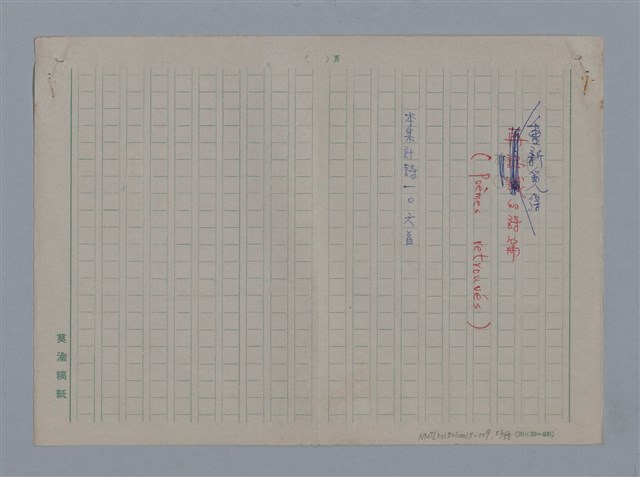 ( )頁
重新覓得
的詩篇
(Poèmes retrouvés)
本集計詩一〇六首
莫渝稿紙